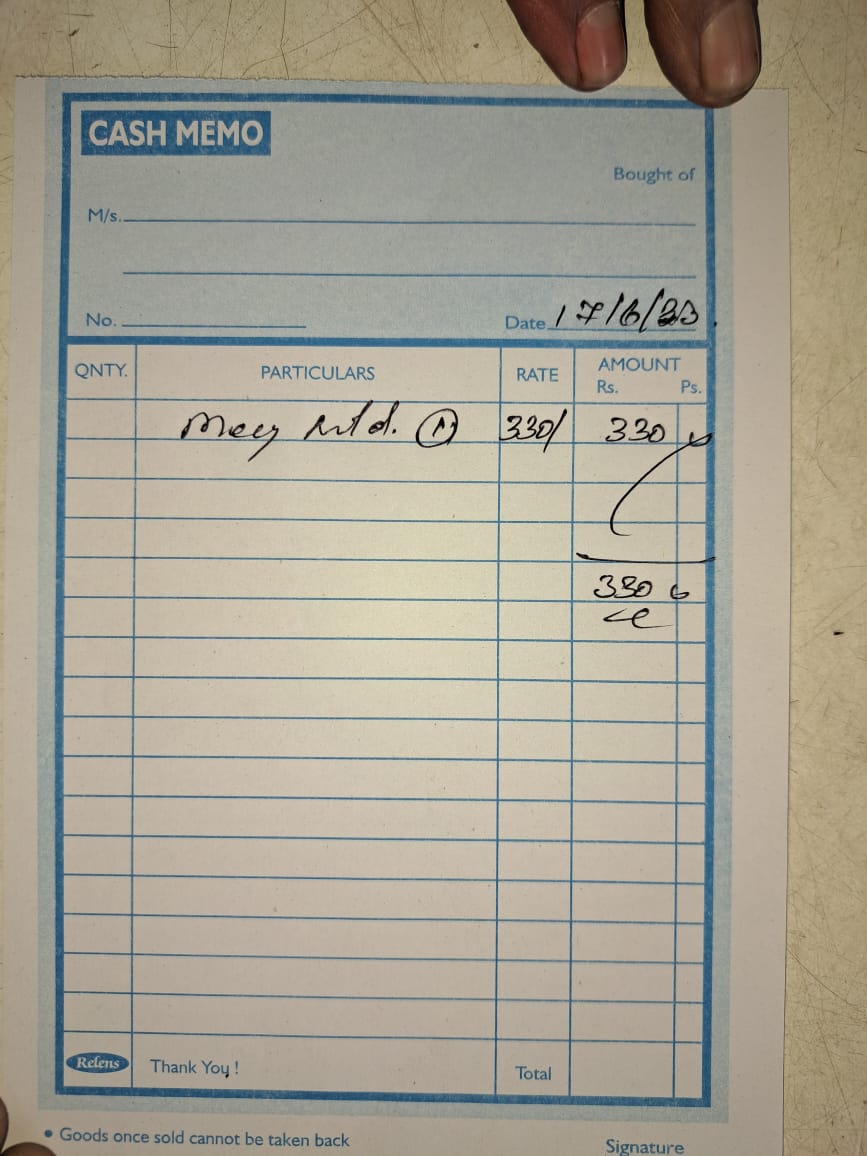 CASH MEMO
Bought of
M/s.
No.
Date 17/6/23
QNTY. PARTICULARS RATE AMOUNT
Rs. Ps.
330/ 330
330
Relens Thank You! Total
• Goods once sold cannot be taken back
Signature